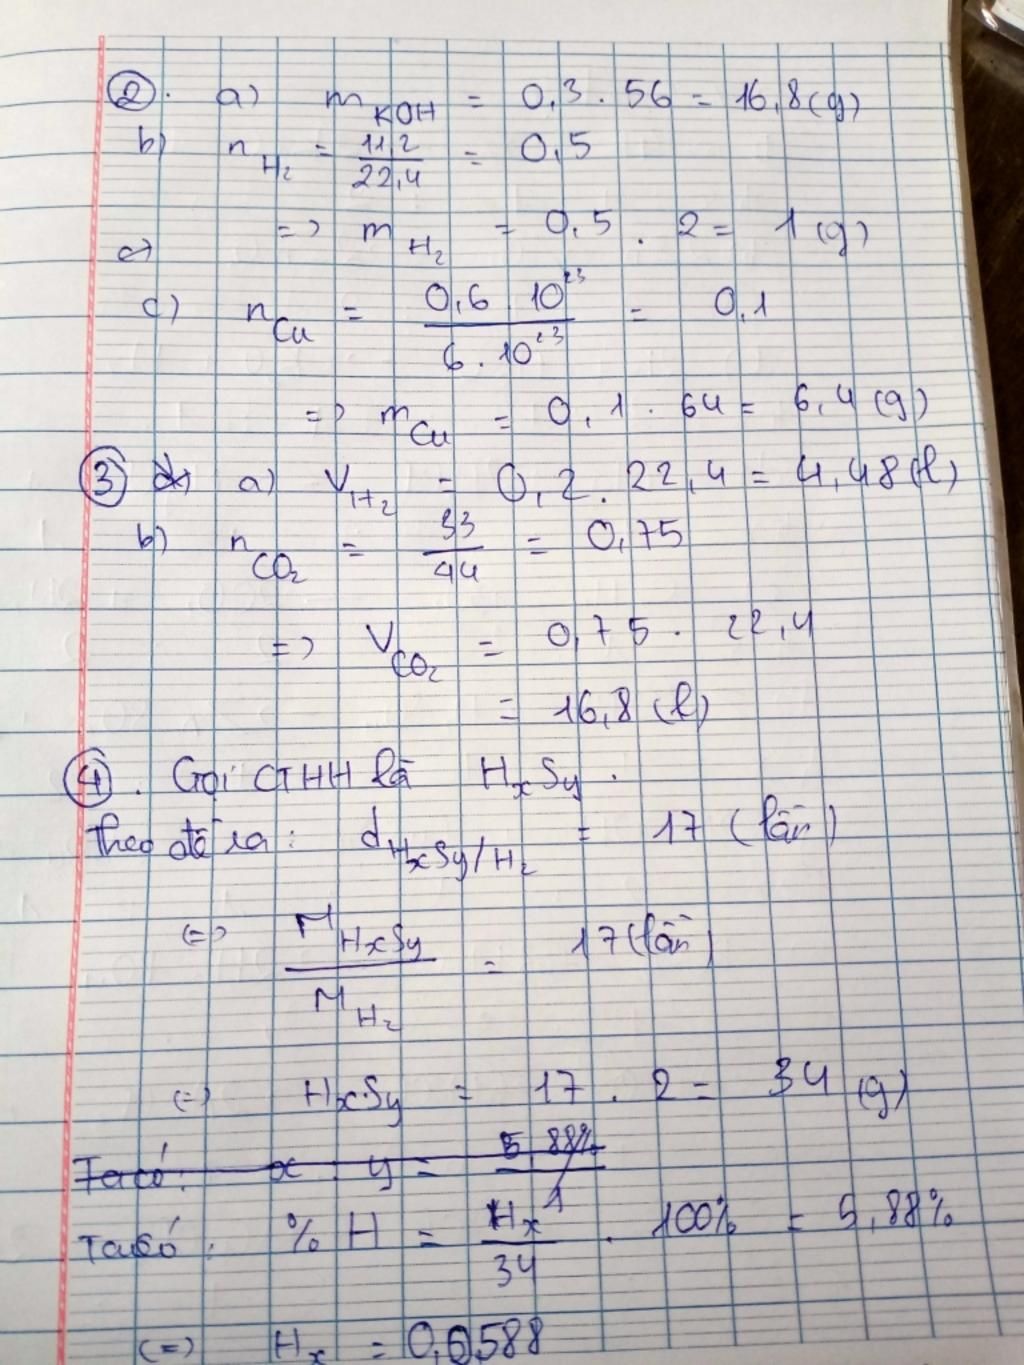 ②. a) m KOH = 0,3 . 56 = 16,8 (g)
b) n H₂ = 11,2 / 22,4 = 0,5
=> m H₂ = 0,5 . 2 = 1 (g)
c) n Cu = 0,6 10²³ / 6 . 10²³ = 0,1
=> m Cu = 0,1 . 64 = 6,4 (g)
③ a) V H₂ = 0,2 . 22,4 = 4,48 (l)
b) n CO₂ = 33 / 44 = 0,75
=> V CO₂ = 0,75 . 22,4
= 16,8 (l)
④. Gọi CTHH là HxSy .
Theo đề ra : d HxSy/H₂ = 17 (lần)
<=> M HxSy / M H₂ = 17 (lần)
<=> HxSy = 17 . 2 = 34 (g)
Ta có : x y = 5,88% / 1
Ta có : % H = Hx / 34 . 100% = 5,88%
<=> Hx = 0,0588